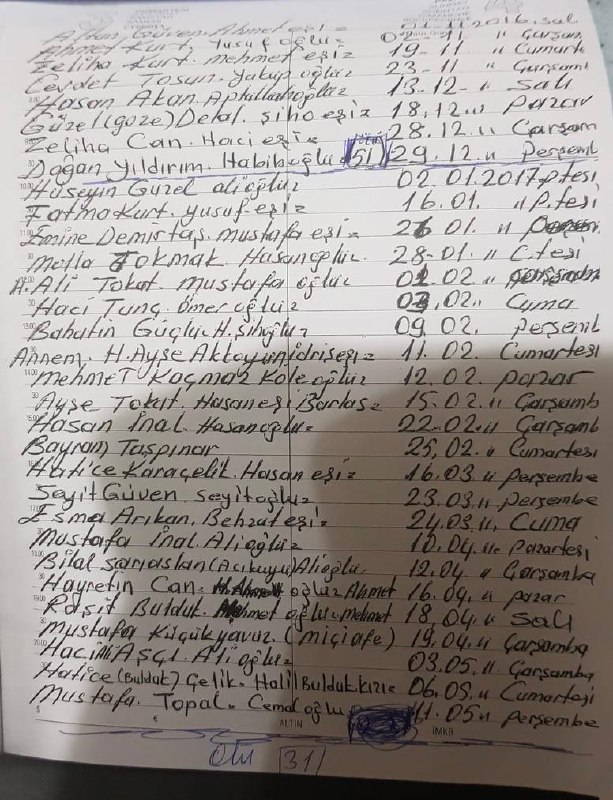 Altun. Güven. Ahmet eşi= 01.11.2016.salı
Ahmet Kurt, Yusuf oğlu= 02-11 " Çarşam
Zeliha Kurt. mehmet eşi= 19-11 " Cumarte
Cevdet Tosun. Yakup oğlu= 23-11 " Çarşamı
Hasan Akan. Aptullahoğlu= 13.12- " Salı
Güzel (göze) Delal. şiho eşi= 18.12." Pazar
Zeliha Can. Haci eşi= 28.12." Çarşam
Doğan Yıldırım. Habiboğlu= 51 29.12." Perşemb
Hüseyin Güzel alioğlu= 02.01.2017 P.tesi
Fatma Kurt. yusuf.eşi= 16.01. " P.tesi
Emine Demirtaş. mustafa eşi= 26 01. "
Molla Tokmak. Hasanoğlu= 28-01. " C.tesi
H. Ali Tokat. mustafa oğlu= 01 02.
Haci Tunç. ömer oğlu= 03.02." Cuma
Bahatin Güçlü. H. oğlu= 09 02. perşemb
Annem. H. Ayşe idriseşi= 11. 02. Cumartesi
Mehmet Kaçmaz Kole oğlu= 12.02. pazar
Ayşe Tokat. Hasan eşi 15-02." Çarşamb
Hasan İnal. Hasanoğlu= 22-02." Çarşamb
Bayram Taşpınar 25.02. " Cumartesi
Hatice Karaçelik. Hasan eşi= 16.03 " perşembe
Seyit Güven. seyitoğlu= 23.03." perşembe
Esma Arıkan. Behzat eşi= 24.03.". Cuma
Mustafa İnal. Alioğlu= 10.04." Pazartesi
Bilal Sarıaslan (Acıkuyu) Alioğlu. 12.04. " Çarşamba
Hayretin Can. oğlu= Ahmet 16.04. " pazar
Raşit Bulduk. Mehmet oğlu. mehmet 18.04. " Salı
Mustafa Küçükyavuz. (miçiafe) 19.04." Çarşamba
Haci Ali Aşçı. Ali oğlu= 03.05. " Çarşamba
Hatice (Bulduk) Çelik. Halil Bulduk kızı= 06.05." Cumartesi
Mustafa. Topal. Cemal oğlu 11.05" perşembe
€ ALTIN İMKB
31